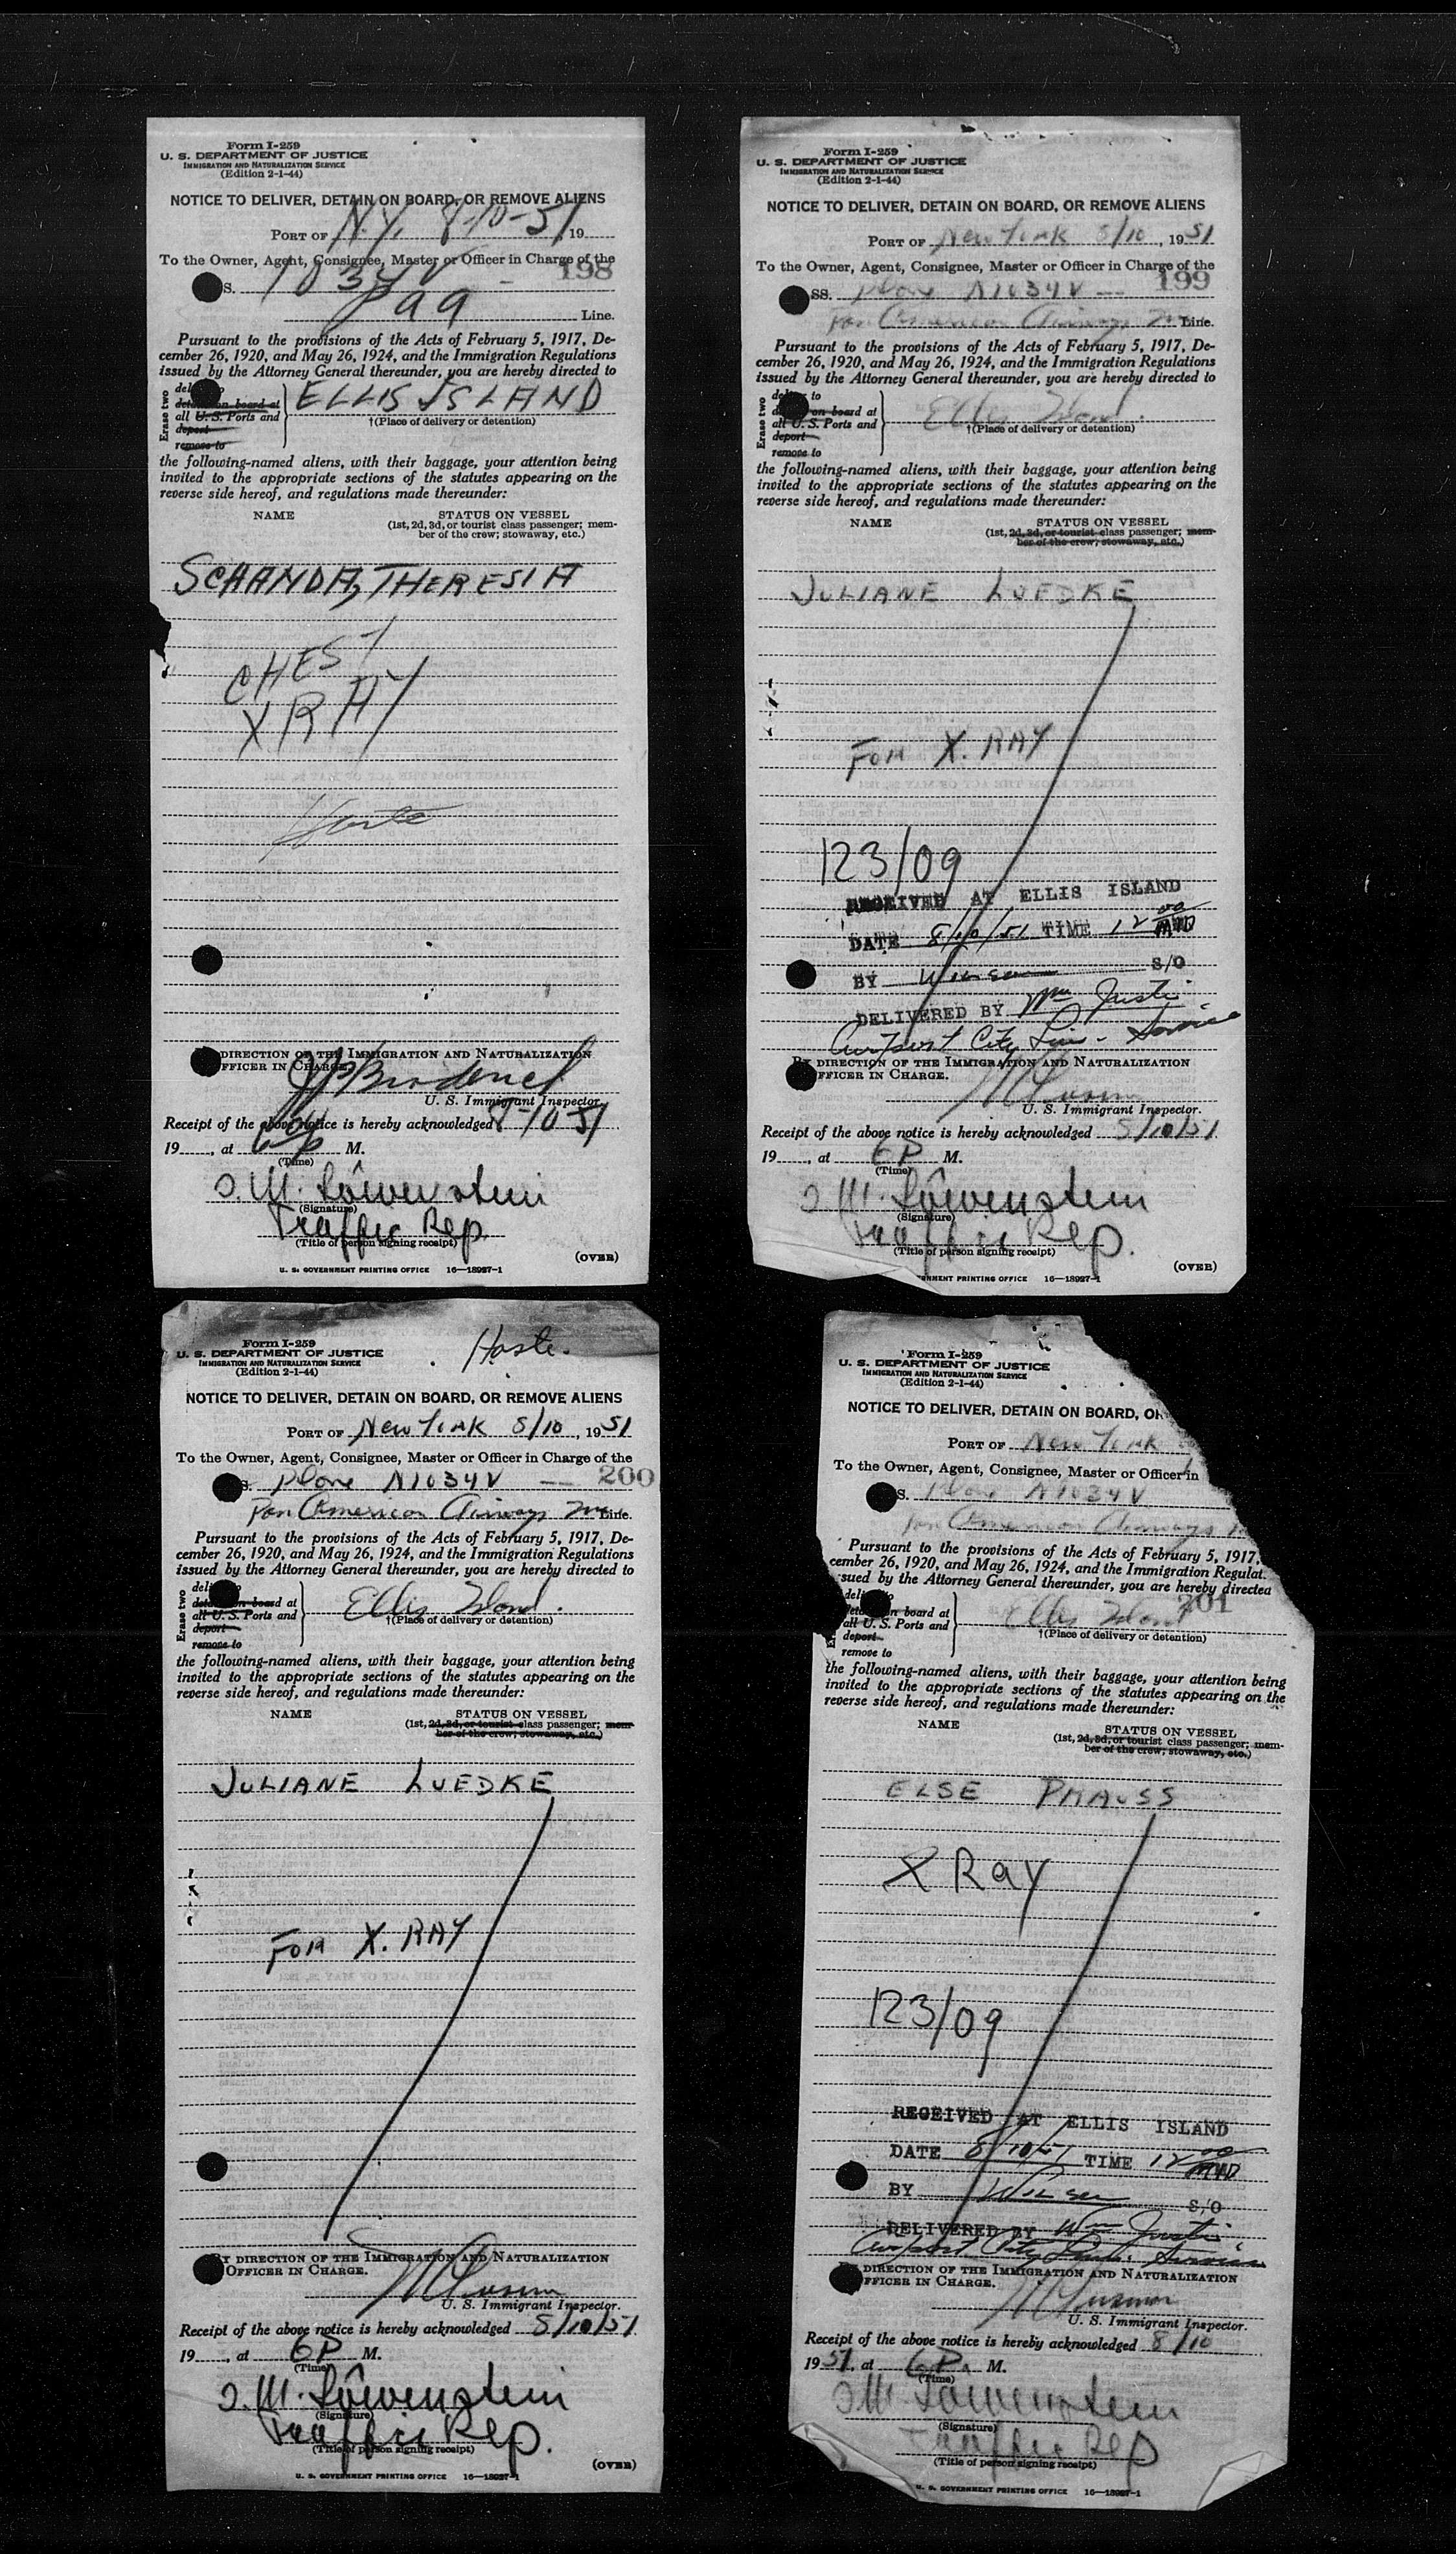 Form I-259
U. S. DEPARTMENT OF JUSTICE
IMMIGRATION AND NATURALIZATION SERVICE
(Edition 2-1-44)
NOTICE TO DELIVER, DETAIN ON BOARD, OR REMOVE ALIENS
PORT OF N.Y. 8-10-51, 19
To the Owner, Agent, Consignee, Master or Officer in Charge of the
198
S. 1034V -
Paa Line.
Pursuant to the provisions of the Acts of February 5, 1917, De-
cember 26, 1920, and May 26, 1924, and the Immigration Regulations
issued by the Attorney General thereunder, you are hereby directed to
Erase two
detain on board at
all U. S. Ports and
deport
remove to
ELLIS ISLAND
†(Place of delivery or detention)
the following-named aliens, with their baggage, your attention being
invited to the appropriate sections of the statutes appearing on the
reverse side hereof, and regulations made thereunder:
NAME STATUS ON VESSEL
(1st, 2d, 3d, or tourist class passenger; mem-
ber of the crew; stowaway, etc.)
SCHANDA, THERESIA
CHEST
X RAY
Haste
DIRECTION OF THE IMMIGRATION AND NATURALIZATION
OFFICER IN CHARGE.
U. S. Immigrant Inspector.
Receipt of the above notice is hereby acknowledged 8-10-51
19, at 6 p M.
(Time)
J. M. Löwenstein
(Signature)
Traffic Rep.
(Title of person signing receipt)
(OVER)
U. S. GOVERNMENT PRINTING OFFICE 16—18927-1
Form I-259
U. S. DEPARTMENT OF JUSTICE
IMMIGRATION AND NATURALIZATION SERVICE
(Edition 2-1-44)
NOTICE TO DELIVER, DETAIN ON BOARD, OR REMOVE ALIENS
PORT OF New York 8/10, 1951
To the Owner, Agent, Consignee, Master or Officer in Charge of the
199
SS. Plane N1034V —
Pan American Airways Inc Line.
Pursuant to the provisions of the Acts of February 5, 1917, De-
cember 26, 1920, and May 26, 1924, and the Immigration Regulations
issued by the Attorney General thereunder, you are hereby directed to
Erase two
to
on board at
all U. S. Ports and
deport
remove to
Ellis Island.
†(Place of delivery or detention)
the following-named aliens, with their baggage, your attention being
invited to the appropriate sections of the statutes appearing on the
reverse side hereof, and regulations made thereunder:
NAME STATUS ON VESSEL
(1st, 2d, 3d, or tourist class passenger; mem-
ber of the crew; stowaway, etc.)
JULIANE LUEDKE
FOR X. RAY
123/09
RECEIVED AT ELLIS ISLAND
DATE 8/10/51 TIME 12 00
BY S/O
DELIVERED BY Wm Justi
Airport City Service
BY DIRECTION OF THE IMMIGRATION AND NATURALIZATION
OFFICER IN CHARGE.
U. S. Immigrant Inspector.
Receipt of the above notice is hereby acknowledged 8/10/51
19, at 6P M.
(Time)
J. M. Löwenstein
(Signature)
Traffic Rep.
(Title of person signing receipt)
(OVER)
RNMENT PRINTING OFFICE 16—18927-1
Form I-259
Haste.
U. S. DEPARTMENT OF JUSTICE
IMMIGRATION AND NATURALIZATION SERVICE
(Edition 2-1-44)
NOTICE TO DELIVER, DETAIN ON BOARD, OR REMOVE ALIENS
PORT OF New York 8/10, 1951
To the Owner, Agent, Consignee, Master or Officer in Charge of the
200
S. Plane N1034V —
Pan American Airways Inc Line.
Pursuant to the provisions of the Acts of February 5, 1917, De-
cember 26, 1920, and May 26, 1924, and the Immigration Regulations
issued by the Attorney General thereunder, you are hereby directed to
Erase two
detain on board at
all U. S. Ports and
deport
remove to
Ellis Island.
†(Place of delivery or detention)
the following-named aliens, with their baggage, your attention being
invited to the appropriate sections of the statutes appearing on the
reverse side hereof, and regulations made thereunder:
NAME STATUS ON VESSEL
(1st, 2d, 3d, or tourist class passenger; mem-
ber of the crew; stowaway, etc.)
JULIANE LUEDKE
FOR X. RAY
BY DIRECTION OF THE IMMIGRATION AND NATURALIZATION
OFFICER IN CHARGE.
U. S. Immigrant Inspector.
Receipt of the above notice is hereby acknowledged 8/10/51
19, at 6P M.
(Time)
J. M. Löwenstein
(Signature)
Traffic Rep.
(Title of person signing receipt)
(OVER)
U. S. GOVERNMENT PRINTING OFFICE 16—18927-1
Form I-259
U. S. DEPARTMENT OF JUSTICE
IMMIGRATION AND NATURALIZATION SERVICE
(Edition 2-1-44)
NOTICE TO DELIVER, DETAIN ON BOARD, OR
PORT OF New York
To the Owner, Agent, Consignee, Master or Officer in
S. Plane N1034V
Pan American Airways
Pursuant to the provisions of the Acts of February 5, 1917,
cember 26, 1920, and May 26, 1924, and the Immigration Regulat
sued by the Attorney General thereunder, you are hereby directed
201
detain on board at
all U. S. Ports and
deport
remove to
Ellis Island
†(Place of delivery or detention)
the following-named aliens, with their baggage, your attention being
invited to the appropriate sections of the statutes appearing on the
reverse side hereof, and regulations made thereunder:
NAME STATUS ON VESSEL
(1st, 2d, 3d, or tourist class passenger; mem-
ber of the crew; stowaway, etc.)
ELSE PRAUSS
X Ray
123/09
RECEIVED AT ELLIS ISLAND
DATE 8/10/51 TIME 12 00
BY S/O
DELIVERED BY Wm Justi
Airport City Service
BY DIRECTION OF THE IMMIGRATION AND NATURALIZATION
OFFICER IN CHARGE.
U. S. Immigrant Inspector.
Receipt of the above notice is hereby acknowledged 8/10
1951, at 6P. M.
(Time)
J. M. Löwenstein
(Signature)
Traffic Rep
(Title of person signing receipt)
U. S. GOVERNMENT PRINTING OFFICE 16—18927-1